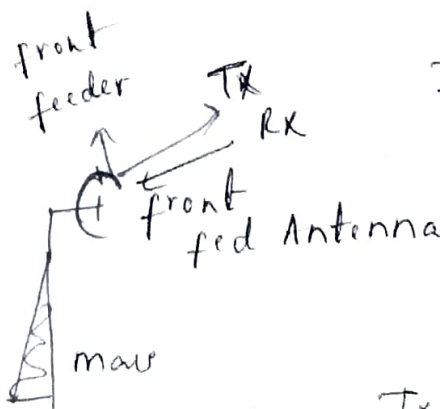 front
feeder
TX
RX
front
fed Antenna
Tx